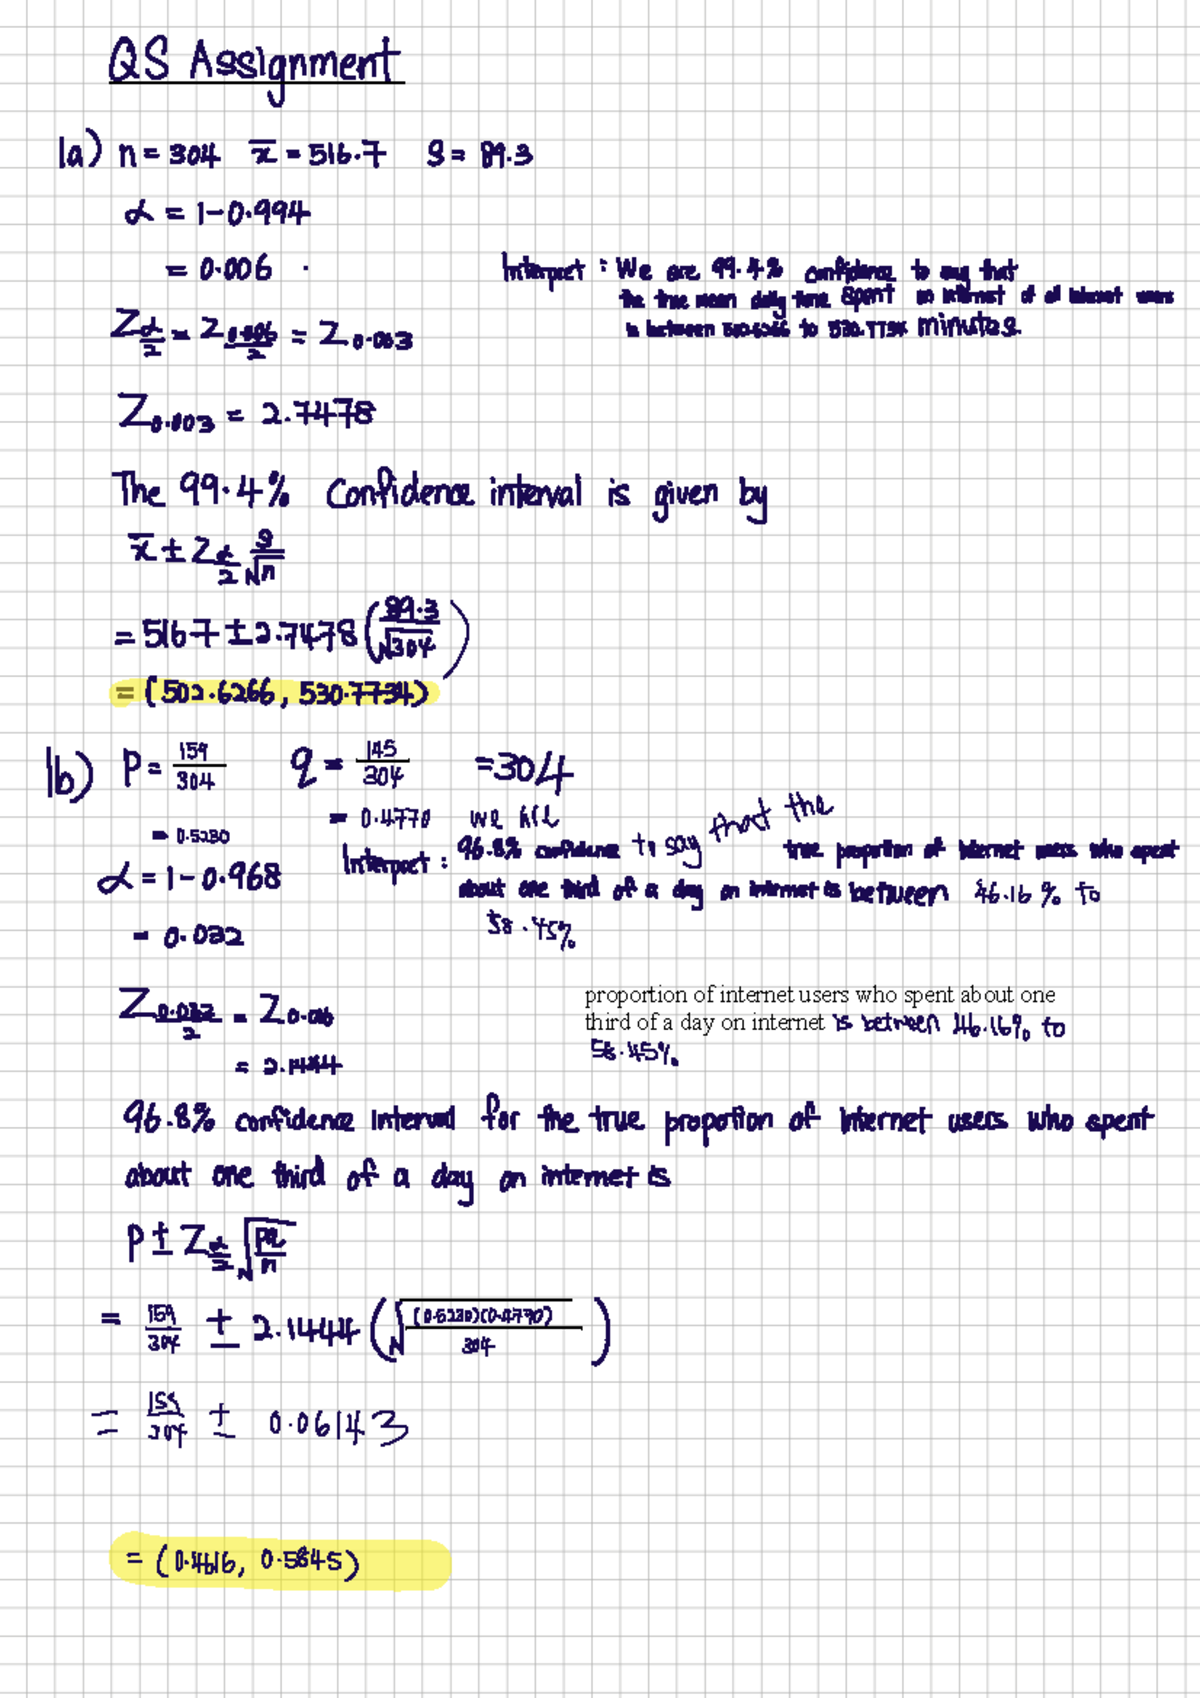 QS Assignment
1a) n = 304 x̄ = 516.7 s = 89.3
α = 1-0.994
= 0.006
Interpret : We are 99.4% confidence to say that
the true mean daily time spent on internet of all internet users
is between 502.6266 to 530.7734 minutes.
Z α/2 = Z 0.006/2 = Z 0.003
Z 0.003 = 2.7478
The 99.4% Confidence interval is given by
x̄ ± Z α/2 s/√n
= 516.7 ± 2.7478 (89.3/√304)
= (502.6266, 530.7734)
1b) P = 159/304 q = 145/304 =304
= 0.5230 = 0.4770 we are
Interpret : 96.8% confidence to say that the true propotion of internet users who spent
about one third of a day on internet is between 46.16% to
58.45%
α = 1-0.968
= 0.032
Z 0.032/2 = Z 0.016
= 2.1444
proportion of internet users who spent about one
third of a day on internet is between 46.16% to
58.45%
96.8% confidence interval for the true propotion of internet users who spent
about one third of a day on internet is
P ± Z α/2 √pq/n
= 159/304 ± 2.1444 (√(0.5230)(0.4770)/304)
= 159/304 ± 0.06143
= (0.4616, 0.5845)